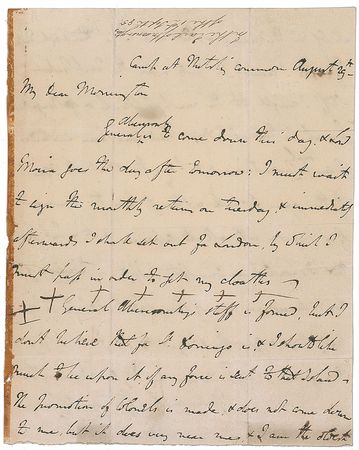 Camp at Netley common August 29th
My Dear Mornington
Abercromby
General is to come down this day, & Lord
Moira goes the day after tomorrow: I must wait
to sign the monthly return on Tuesday, & immediately
afterwards I shall set out for London, by which I
must pass in order to get my cloathes
General Abercromby's staff is formed, but I
don't believe that for St. Domingo is & I should like
much to be upon it if any force is sent to that Island
The promotion of Colonels is made, & does not come down
to me, but it does very near me & I am the oldest